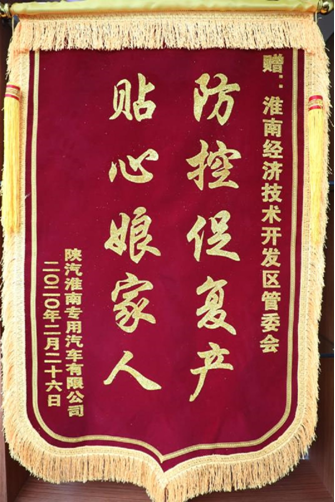 赠：淮南经济技术开发区管委会
防控促复产
贴心娘家人
陕汽淮南专用汽车有限公司
二〇二〇年二月二十六日